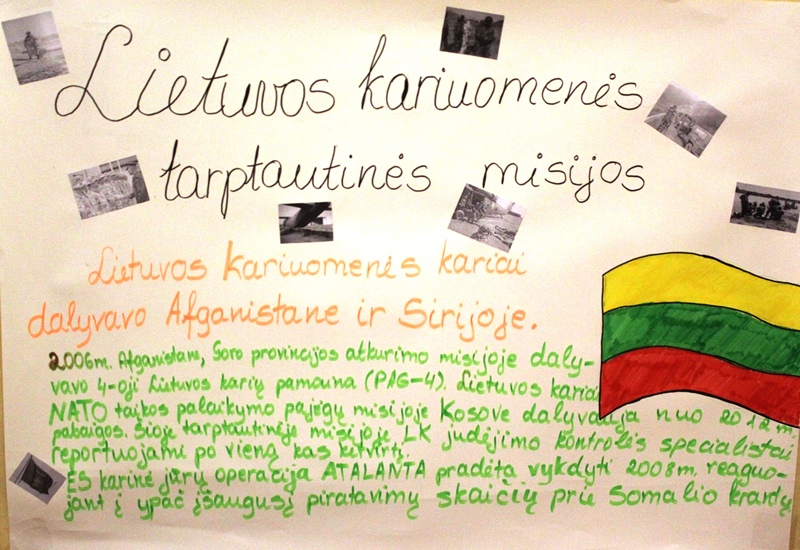 Lietuvos kariuomenės
tarptautinės misijos
Lietuvos kariuomenės kariai
dalyvavo Afganistane ir Sirijoje.
2006m. Afganistane, Goro provincijos atkūrimo misijoje daly-
vavo 4-oji Lietuvos karių pamaina (PAG-4). Lietuvos kariai
NATO taikos palaikymo pajėgų misijoje Kosove dalyvauja nuo 2012m.
pabaigos. Šioje tarptautinėje misijoje LK judėjimo kontrolės specialistai
reportuojami po vieną kas ketvirtį.
ES karinė jūrų operacija ATALANTA pradėta vykdyti 2008m. reaguo-
jant į ypač išaugusį piratavimų skaičių prie Somalio krantų